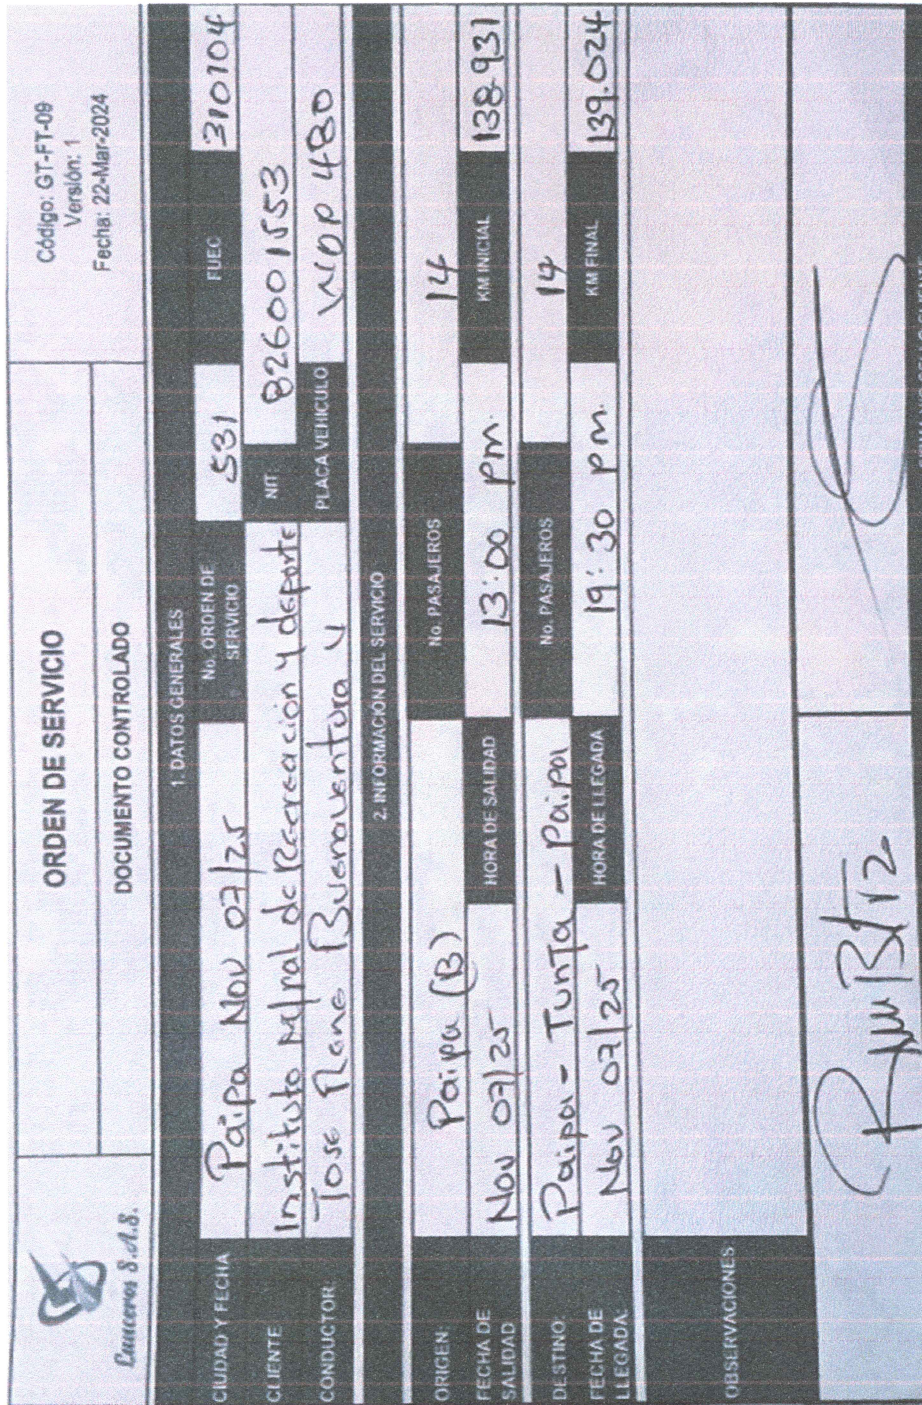 Lanceros S.A.S.
ORDEN DE SERVICIO
DOCUMENTO CONTROLADO
Código: GT-FT-09
Versión: 1
Fecha: 22-Mar-2024
1. DATOS GENERALES
CIUDAD Y FECHA Paipa Nov 07/25 No. ORDEN DE SERVICIO 531 FUEC 310104
CLIENTE Instituto M/pal de Recreación y deporte NIT 826001553
CONDUCTOR: Jose Rene Buenaventura V PLACA VEHICULO WDP 480
2. INFORMACIÓN DEL SERVICIO
ORIGEN: Paipa (B) No. PASAJEROS 14
FECHA DE SALIDAD Nov 07/25 HORA DE SALIDAD 13:00 pm. KM INICIAL 138.931
DESTINO: Paipa - Tunja - Paipa No. PASAJEROS 14
FECHA DE LLEGADA: Nov 07/25 HORA DE LLEGADA 19:30 pm. KM FINAL 139.024
OBSERVACIONES: